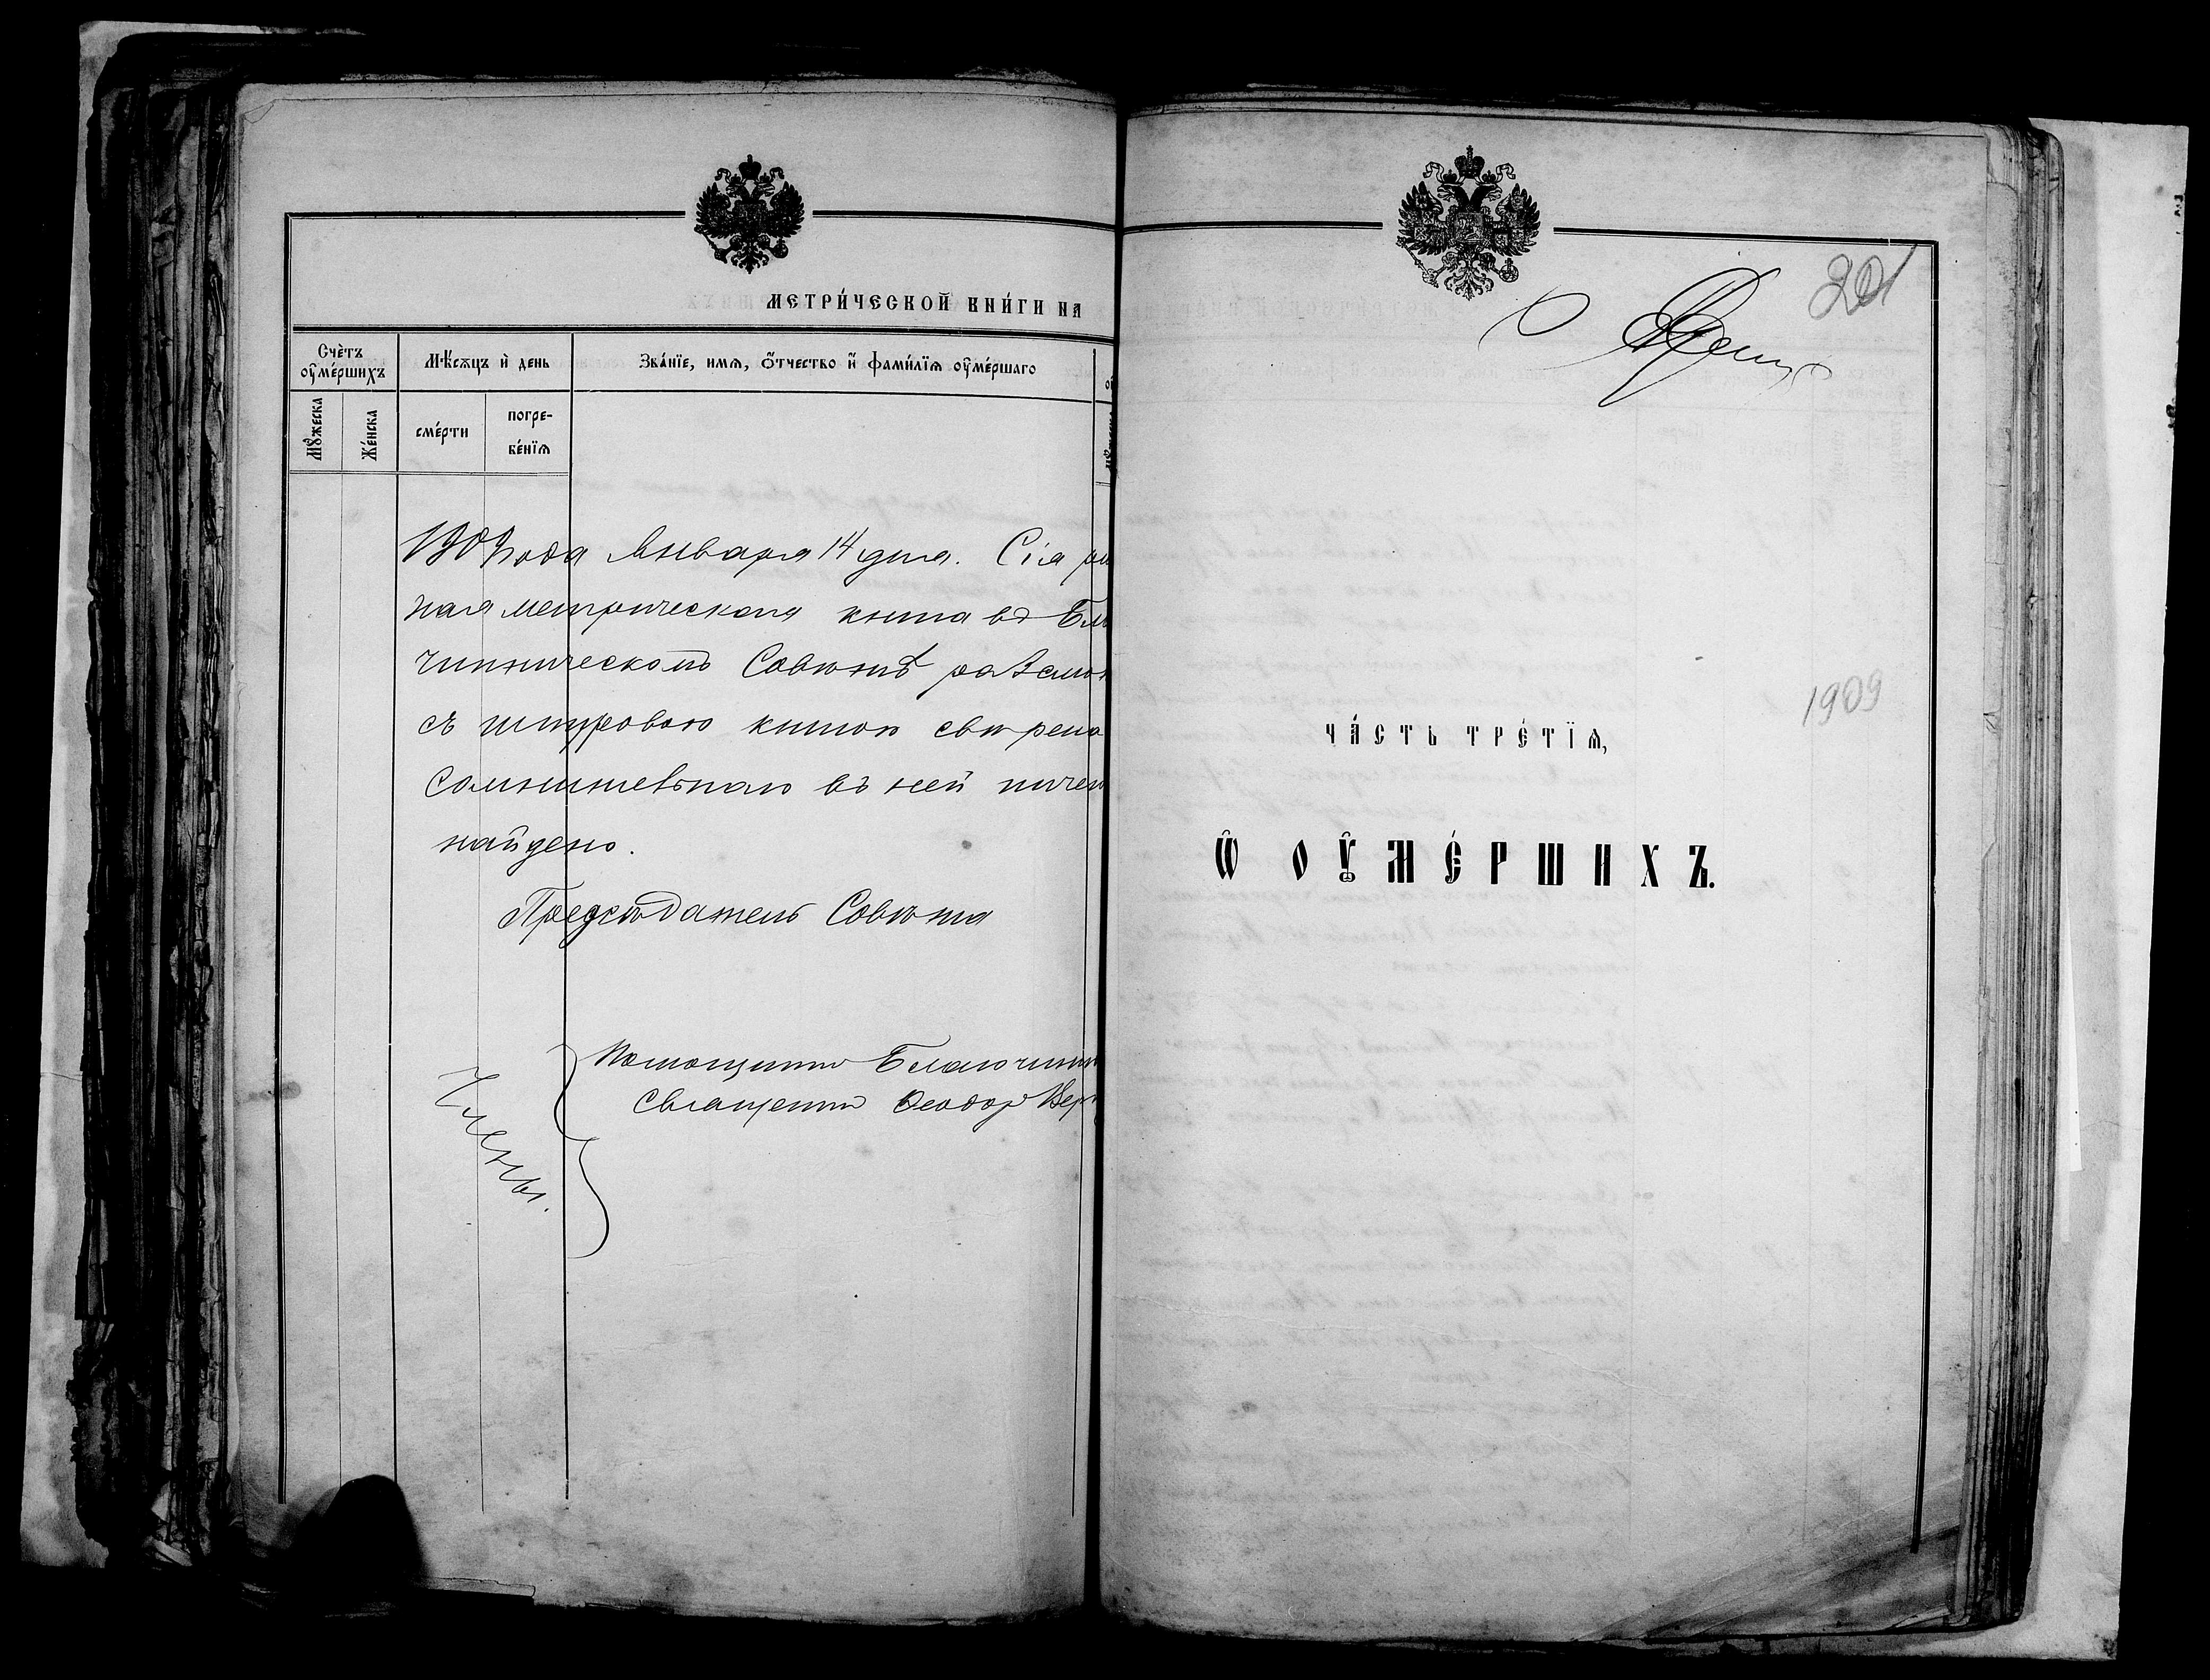 МЕТРИ́ЧЕСКОЙ КНИ́ГИ НА
Счѐтъ ᲂу҆ме́ршихъ
Мѣ́сѧцъ и҆ день
Зва́нїе, имѧ, ѻ҆́тчество и҆ фами́лїѧ ᲂу҆ме́ршаго
Мꙋжеска
Же́нска
сме́рти
погре-
бе́нїѧ
1909 года Января 14 дня. Сія
ная метрическая книга въ Бла
чинническомъ Совѣтѣ разсмот
съ шнуровою книгою свѣрена
сомнительнаго въ ней ничего
найдено.
Предсѣдатель Совѣта
Члены.
Помощникъ Благочинн
Священникъ Ѳеодоръ Вер
201
1909
ЧА́СТЬ ТРЕ́ТЇѦ,
Ѡ҆ ОУ҆МЕ́РШИХЪ.